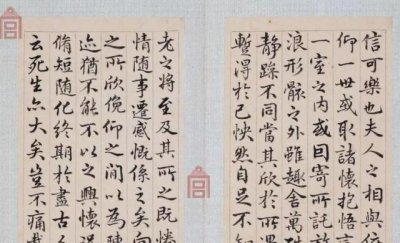 信可樂也夫人之相與俯
仰一世或取諸懷抱悟言
一室之内或因寄所託放
浪形骸之外雖趣舍萬殊
靜躁不同當其欣於所
暫得於己怏然自足不知
老之將至及其所之既惓
情隨事遷感慨係之矣向
之所欣俛仰之間以為陳
迹猶不能不以之興懷況
脩短隨化終期於盡古人
云死生亦大矣豈不痛哉